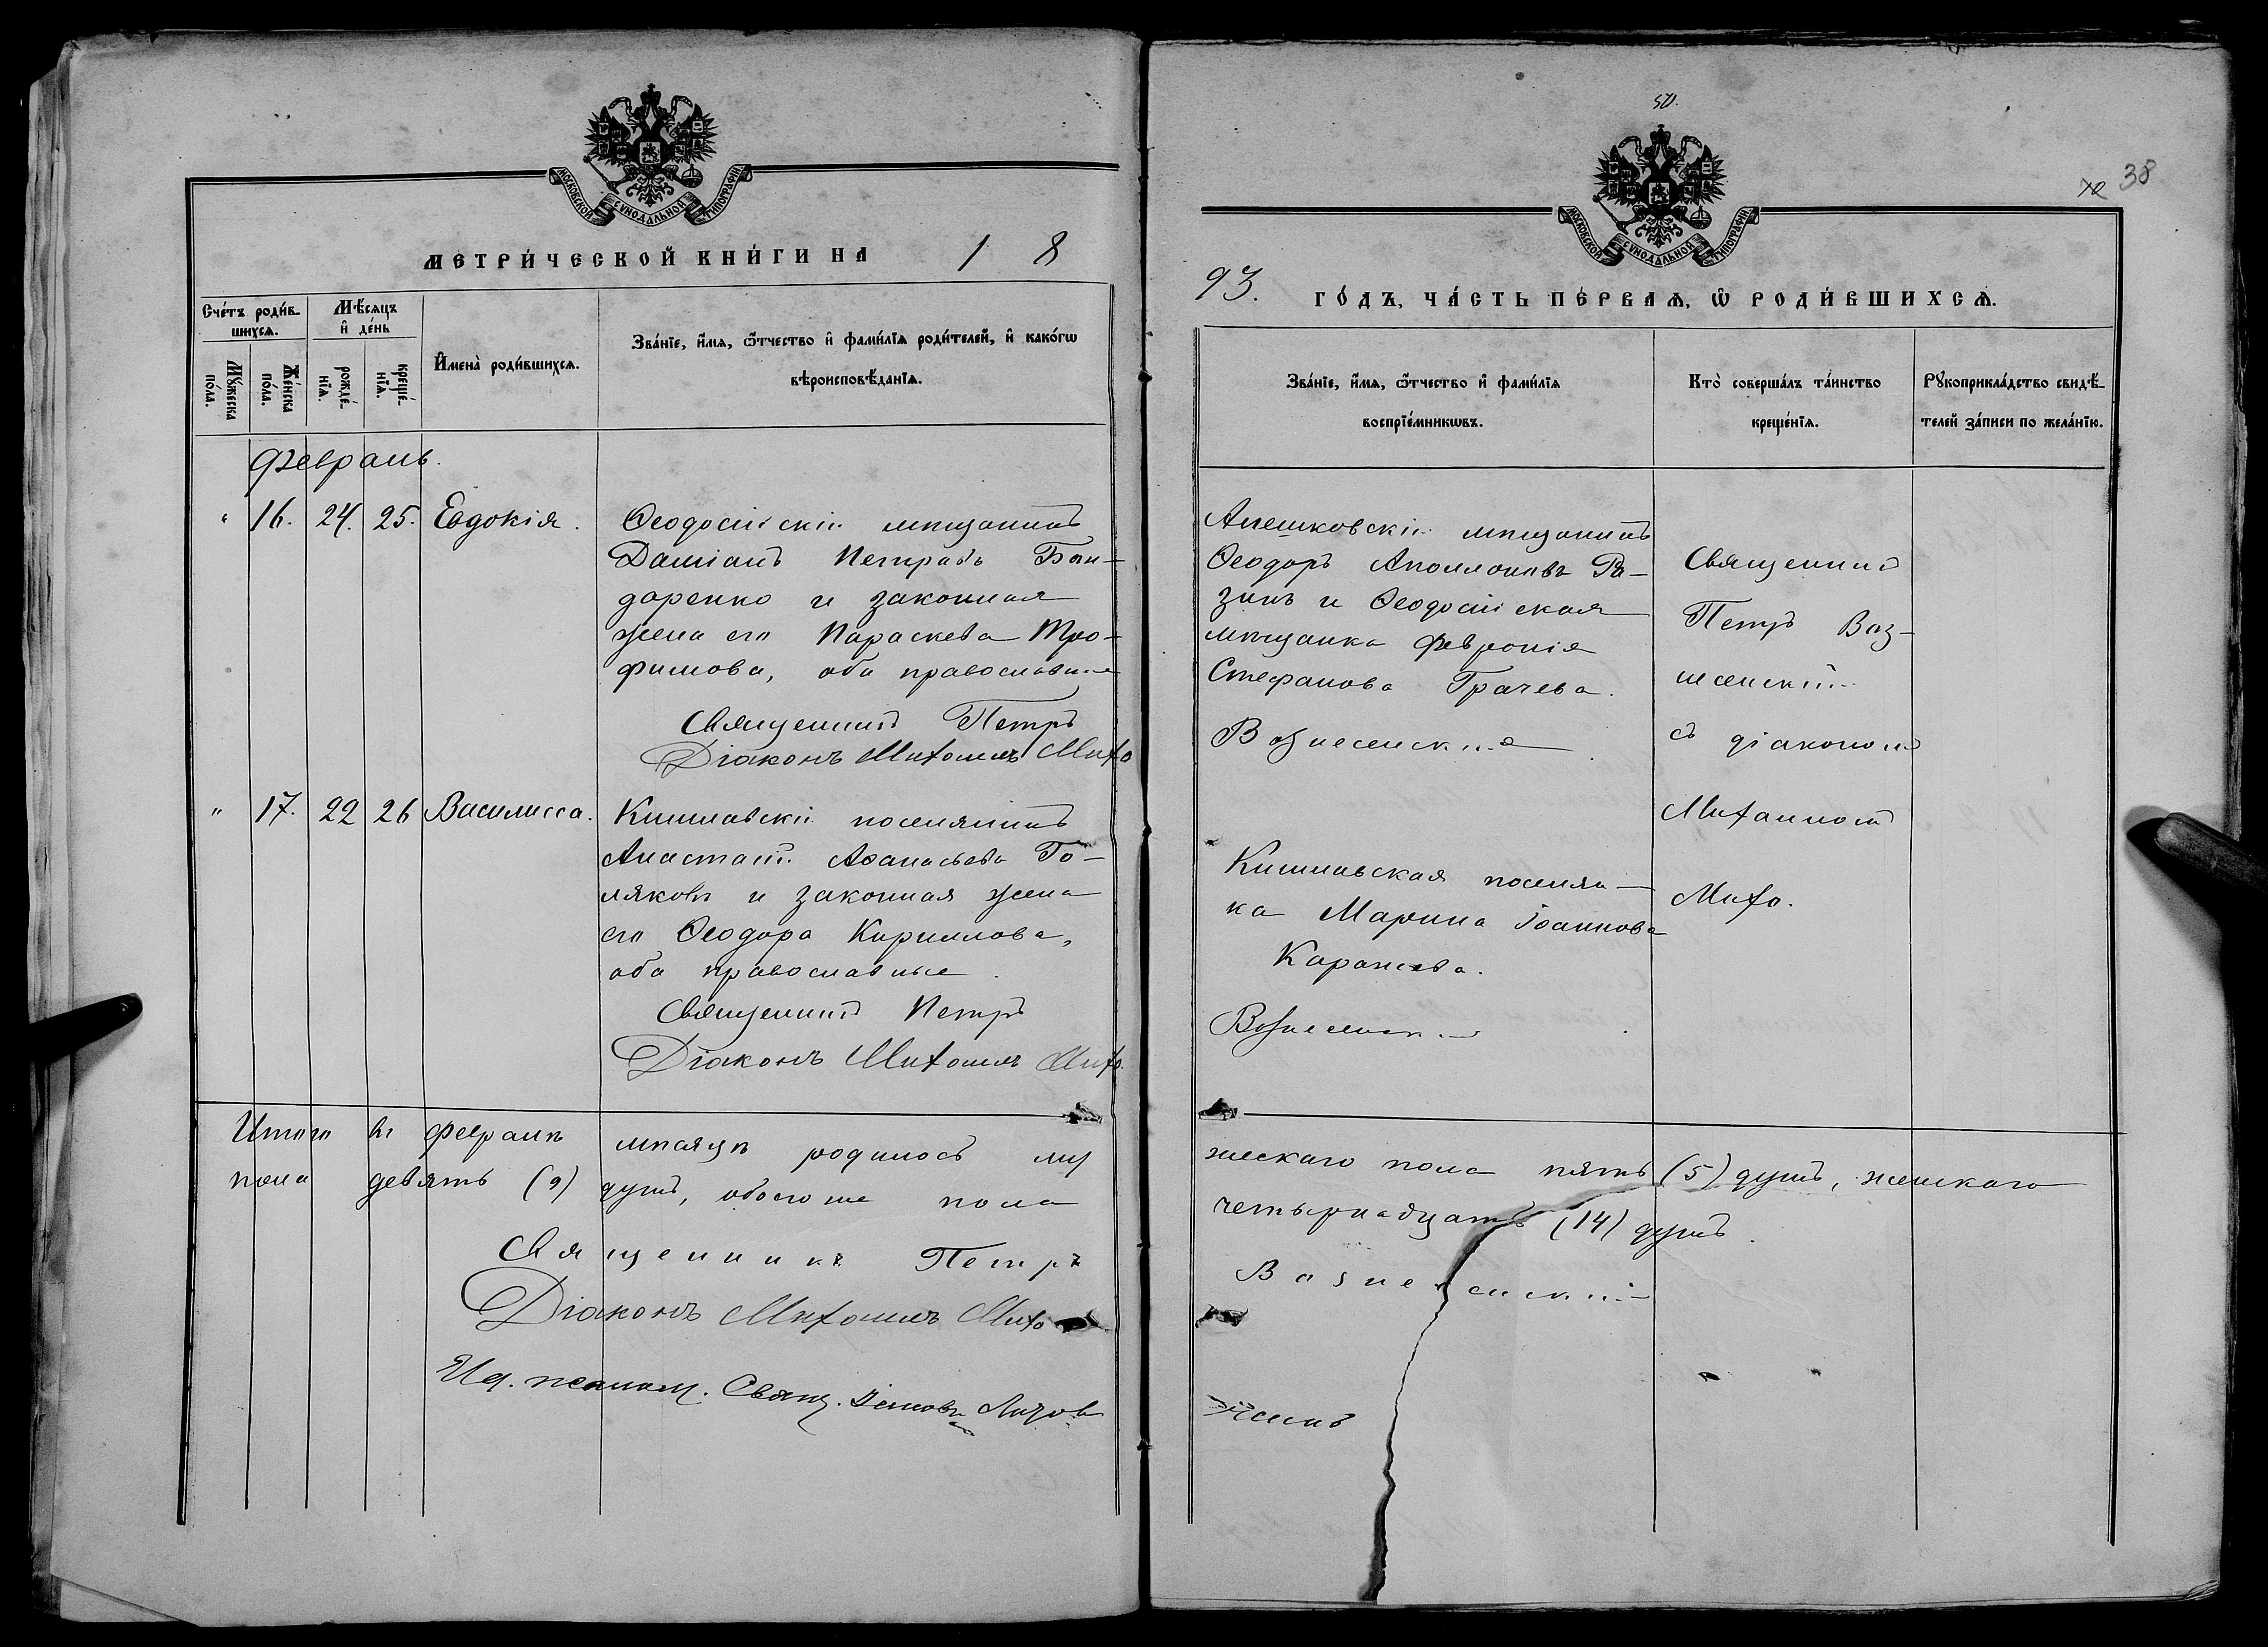 МОСКОВСКОЙ СѴНОДАЛЬНОЙ ТИПОГРАФІИ
МЕТРИ́ЧЕСКОЙ КНИ́ГИ НА 1 8
Сче́тъ роди́в-
шихсѧ.
Мѣ́сѧцъ
и҆ де́нь
Мꙋ́жеска
по́ла.
Же́нска
по́ла.
рожде́-
нїѧ.
креще́-
нїѧ.
И҆мена̀ роди́вшихсѧ.
Зва́нїе, и҆́мѧ, ѻ҆́тчество и҆ фами́лїѧ роди́телей, и҆ како́гѡ
вѣроисповѣ́данїѧ.
Февраль.
" 16. 24. 25. Евдокія.
Ѳеодосійскій мѣщанинъ
Даміанъ Петровъ Бон-
даренко и законная
жена его Параскева Тро-
фимова, оба православные
Священникъ Петръ
Діаконъ Михаилъ Михо
" 17. 22 26 Василисса.
Кишлавскій поселянинъ
Анастасій Аѳанасьевъ По-
ляковъ и законная жена
его Ѳеодора Кириллова,
оба православные.
Священникъ Петръ
Діаконъ Михаилъ Михо.
Итого въ Февралѣ мѣсяцѣ родилось му
пола девять (9) душъ, обоего же пола
Священникъ Петръ
Діаконъ Михаилъ Михо
Свящ.
50.
38
МОСКОВСКОЙ СѴНОДАЛЬНОЙ ТИПОГРАФІИ
93. ГО́ДЪ, ЧА́СТЬ ПЕ́РВАѦ, Ѡ҆ РОДИ́ВШИХСѦ.
Зва́нїе, и҆́мѧ, ѻ҆́тчество и҆ фами́лїѧ
воспрїе́мникѡвъ.
Кто̀ соверша́лъ та́инство
креще́нїѧ.
Рꙋкоприкла́дство свидѣ́-
телей за́писи по жела́нїю.
Алешковскій мѣщанинъ
Ѳеодоръ Аполлоновъ Ра-
зинъ и Ѳеодосійская
мѣщанка Февронія
Стефанова Грачева.
Вознесенскій
Священникъ
Петръ Воз-
несенскій
съ діакономъ
Михаиломъ
Михо.
Кишлавская поселян-
ка Марина Іоаннова
Каранева.
Вознесенскій
жескаго пола пять (5) душъ, женскаго
четырнадцать (14) душъ.
Вознесенскій